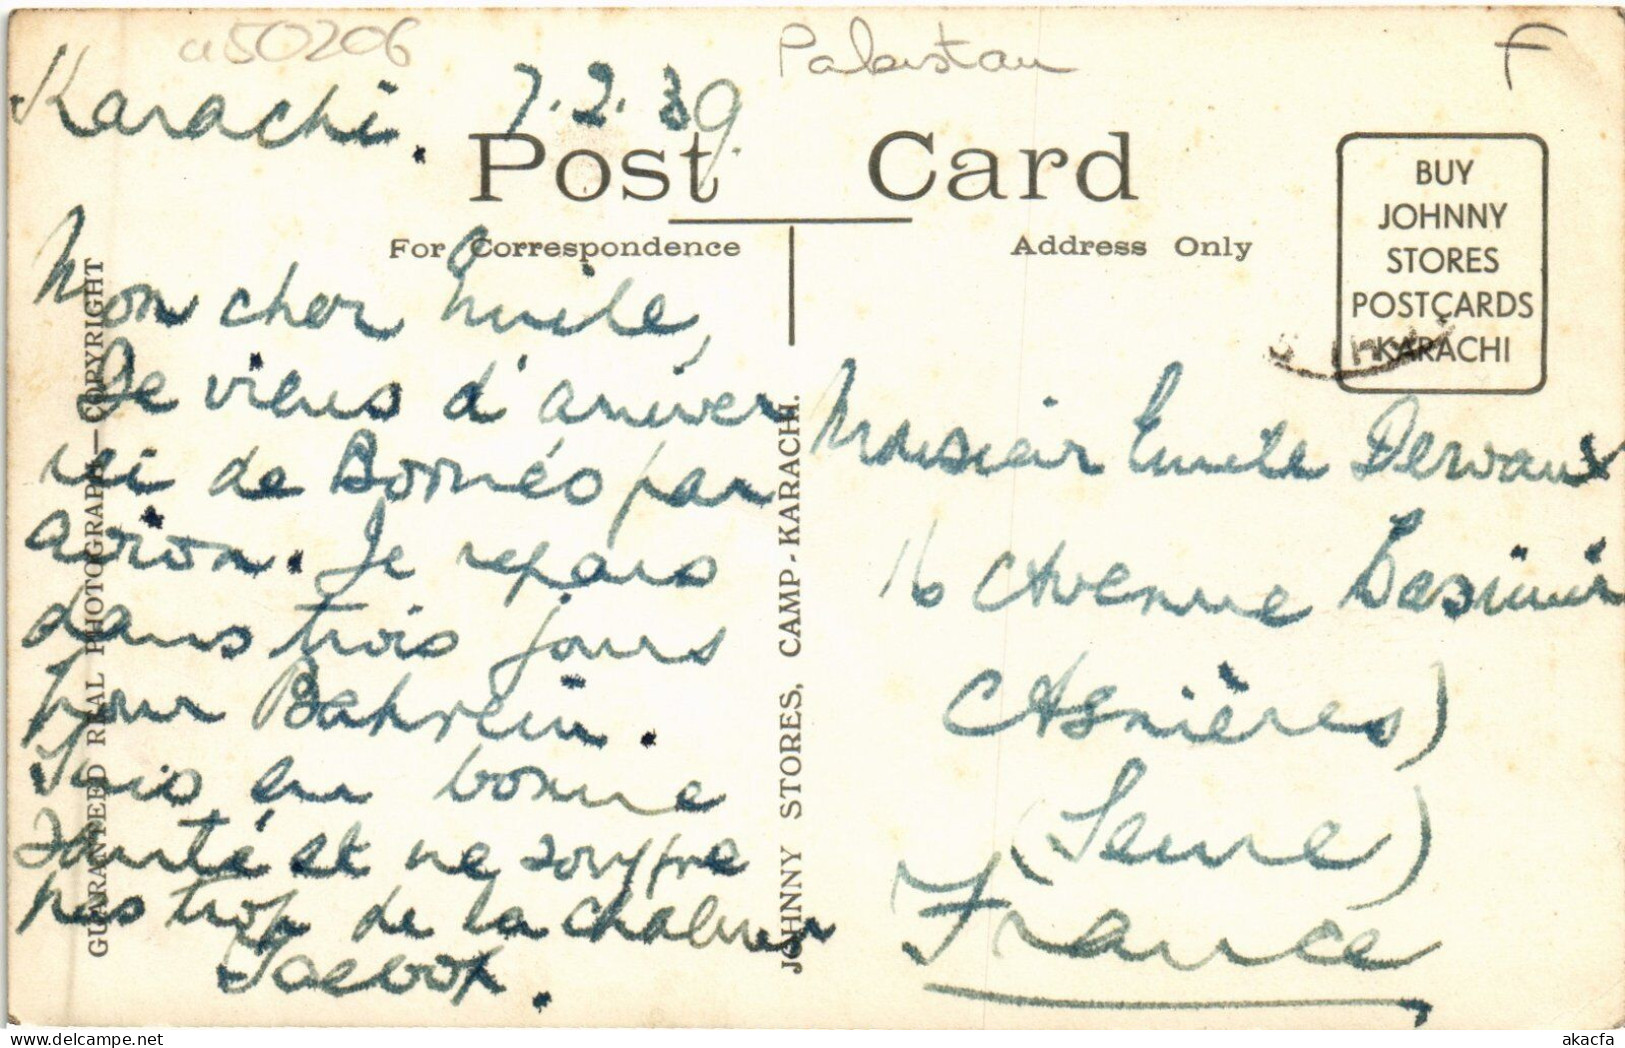 a50206
Pakistan
F
Karachi. 7.2.39.
Post Card
For Correspondence
Address Only
BUY
JOHNNY
STORES
POSTCARDS
KARACHI
GUARANTEED REAL PHOTOGRAPH — COPYRIGHT
JOHNNY STORES, CAMP-KARACHI.
Mon cher Emile,
Je viens d'arriver
ici de Bornéo par
avion. Je repars
dans trois jours
pour Bahrein.
Suis en bonne
santé et ne souffre
pas trop de la chaleur
Monsieur Emile Dervaux
16 Avenue
Asnières)
(Seine)
France
akacfa